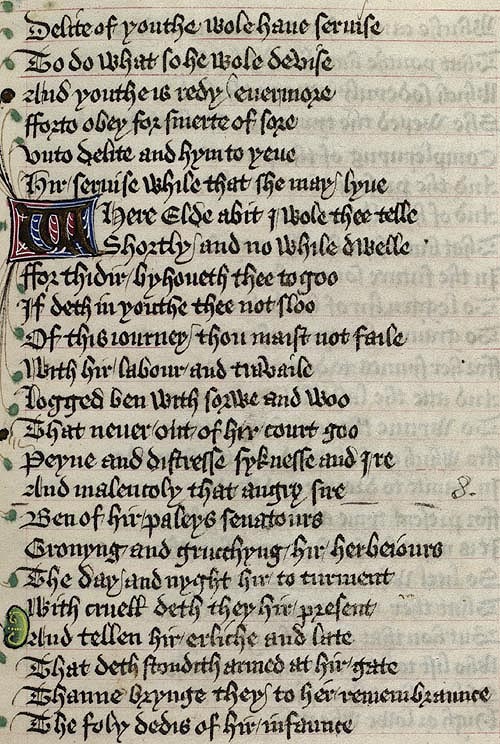 Delite of youthe wole haue seruise
To do what so he wole devise
And youthe is redy / euermore
fforto obey for smerte of sore
vnto delite and hym to yeue
Hir / seruise while that she may / lyue
WHere Elde abit I wole thee telle
Shortly / and no while dwelle
ffor thidir / byhoueth thee to goo
If deth in youthe thee not sloo
Of this iourney / thou maist not faile
With hir / labour / and travaile
logged ben with sorwe and woo
That neuer / out / of hir / court goo
Peyne and distresse syknesse and Ire
And malencoly that angry sire
8.
Ben of hir / paleys senatours
Gronyng and grucchyng / hir / herbeiours
The day / and nyght hir to turment
With cruell deth they hir / present
And tellen hir / erliche and late
That deth stondith armed at hir / gate
Thanne brynge they / to her remembraunce
The foly dedis of hir / infaunce